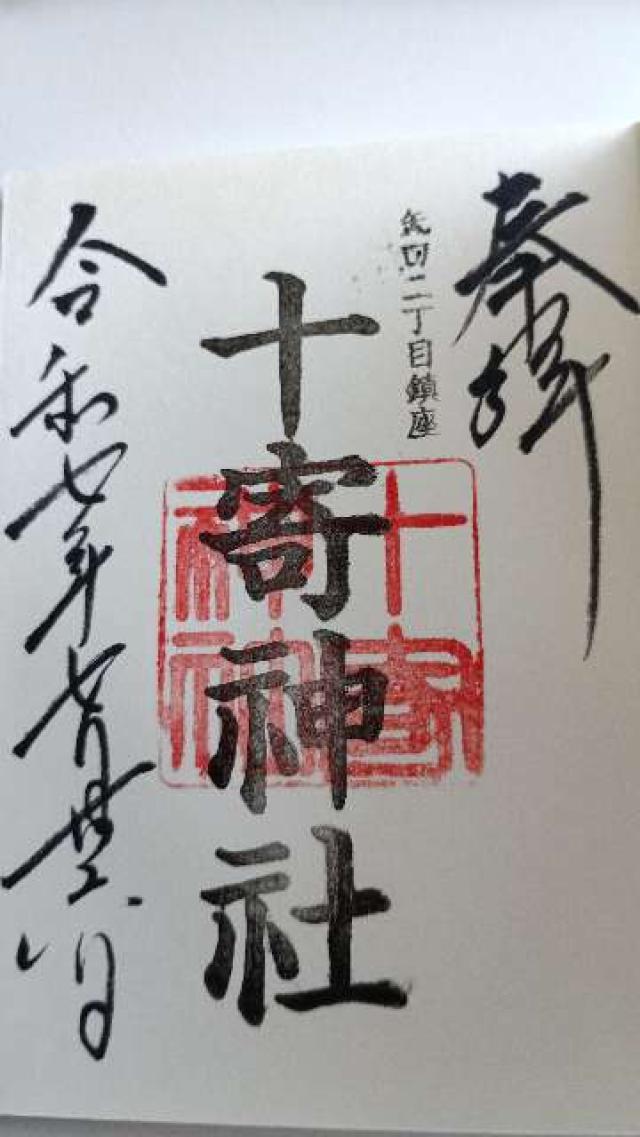 奉拝
矢口二丁目鎮座
十寄神社
十寄
神社
令和七年七月廿日